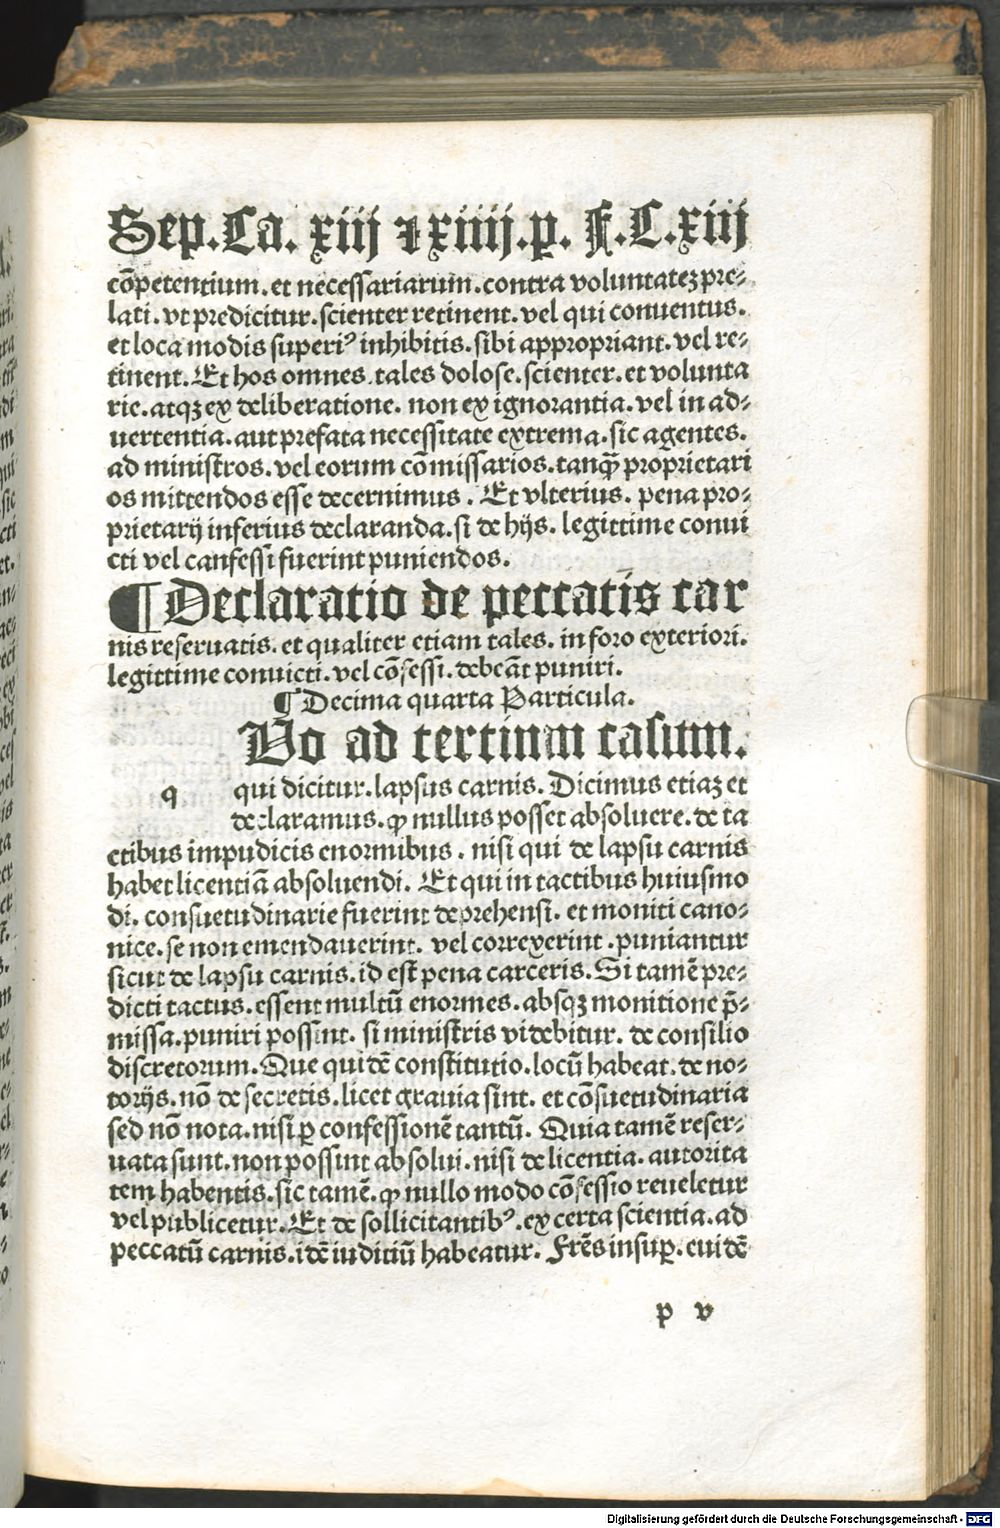 Sep. Ca. xiij ⁊ xiiij. ꝑ. F. C. xiij
cōpetentium. et necessariarum. contra voluntatez pre⸗
lati. vt predicitur. scienter retinent. vel qui conuentus.
et loca modis superiꝰ inhibitis. sibi appropriant. vel re⸗
tinent. Et hos omnes. tales dolose. scienter. et volunta
rie. atqꝫ ex deliberatione. non ex ignorantia. vel in ad⸗
uertentia. aut prefata necessitate extrema. sic agentes.
ad ministros. vel eorum cōmissarios. tanqꝫ̄ proprietari
os mittendos esse decernimus. Et vlterius. pena pro⸗
prietarij inferius declaranda. si de hijs. legittime conui
cti vel canfessi fuerint puniendos.
¶ Declaratio de peccatis car
nis reseruatis. et qualiter etiam tales. in foro exteriori.
legittime conuicti. vel cōfessi. debeāt puniri.
¶ Decima quarta Particula.
Uo ad tertinm casum.
q qui dicitur. lapsus carnis. Dicimus etiaꝫ et
declaramus. ꝙ nullus posset absoluere. de ta
ctibus impudicis enormibus. nisi qui de lapsu carnis
habet licentiā absoluendi. Et qui in tactibus huiusmo
di. consuetudinarie fuerint deprehensi. et moniti cano⸗
nice. se non emendauerint. vel correxerint. puniantur
sicut de lapsu carnis. id est pena carceris. Si tamē pre⸗
dicti tactus. essent multū enormes. absqꝫ monitione p̄⸗
missa. puniri possint. si ministris videbitur. de consilio
discretorum. Que quidē constitutio. locū habeat. de no⸗
torijs. nō de secretis. licet grauia sint. et cōsuetudinaria
sed nō nota. nisi ꝑ confessionē tantū. Quia tamē reser⸗
uata sunt. non possint absolui. nisi de licentia. autorita
tem habentis. sic tamē. ꝙ nullo modo cōfessio reueletur
vel publicetur. Et de sollicitantibꝰ. ex certa scientia. ad
peccatū carnis. idē iuditiū habeatur. Frēs insuꝑ. euidē
p v
Digitalisierung gefördert durch die Deutsche Forschungsgemeinschaft - DFG